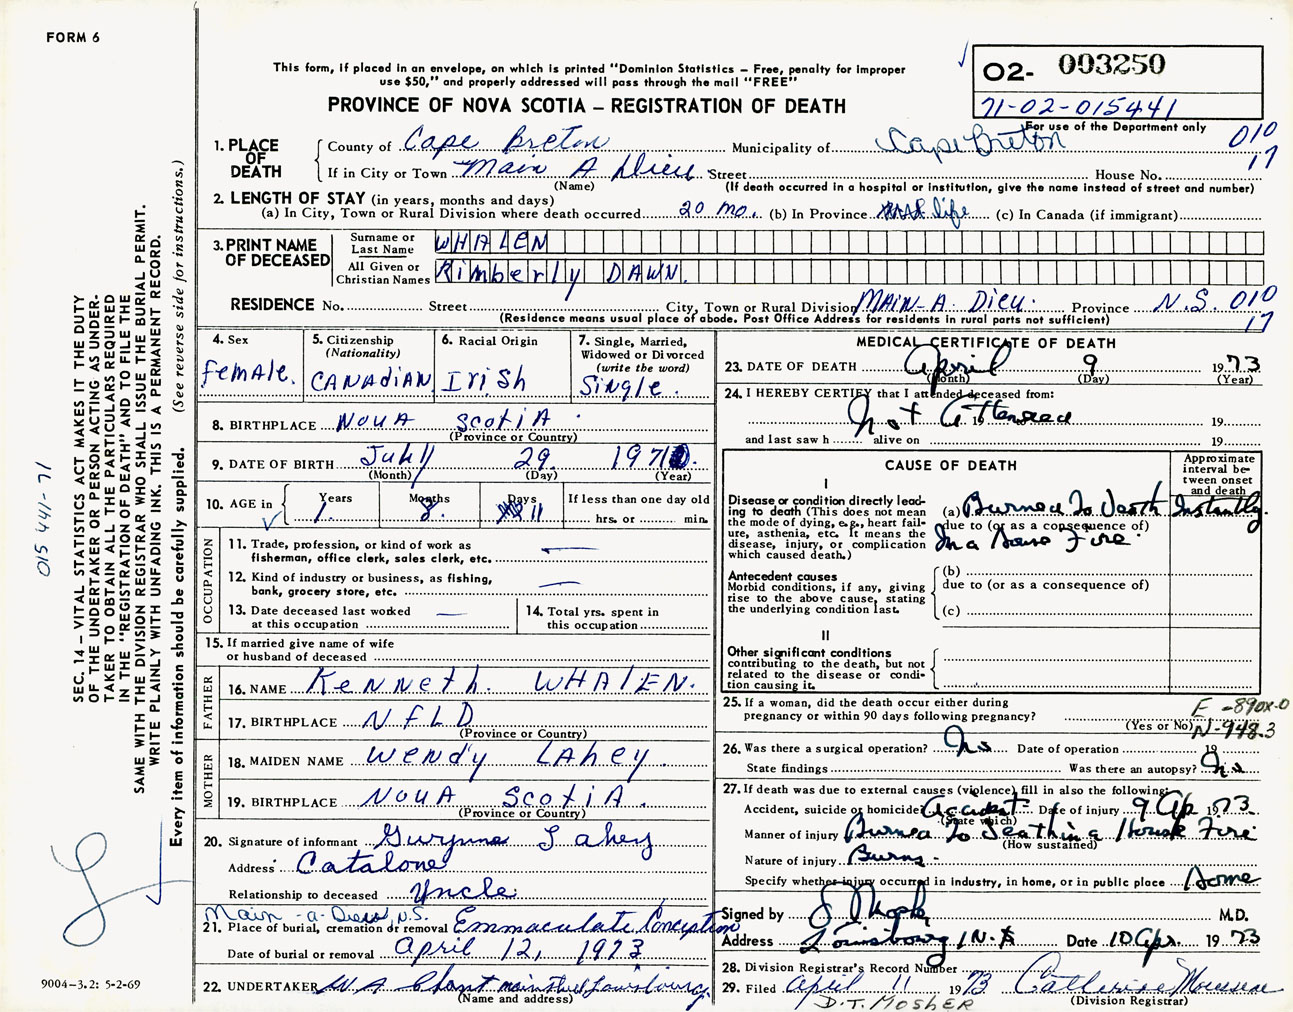 FORM 6
This form, if placed in an envelope, on which is printed "Dominion Statistics – Free, penalty for improper
use $50," and properly addressed will pass through the mail "FREE"
PROVINCE OF NOVA SCOTIA – REGISTRATION OF DEATH
02- 003250
71-02-015441
For use of the Department only
010
17
1. PLACE OF DEATH
County of Cape Breton Municipality of Cape Breton
If in City or Town Main A Dieu Street House No.
(Name) (If death occurred in a hospital or institution, give the name instead of street and number)
2. LENGTH OF STAY (in years, months and days)
(a) In City, Town or Rural Division where death occurred 20 mo. (b) In Province life (c) In Canada (if immigrant)
3. PRINT NAME OF DECEASED
Surname or Last Name WHALEN
All Given or Christian Names Kimberly DAWN.
RESIDENCE No. Street City, Town or Rural Division MAIN-A-Dieu. Province N.S. 010
(Residence means usual place of abode. Post Office Address for residents in rural parts not sufficient) 17
4. Sex
FemAle.
5. Citizenship (Nationality)
CANAdiAN
6. Racial Origin
Irish
7. Single, Married, Widowed or Divorced (write the word)
Single.
8. BIRTHPLACE NovA ScotiA.
(Province or Country)
9. DATE OF BIRTH July 29 1971
(Month) (Day) (Year)
10. AGE in
Years Months Days If less than one day old
1. 8. 11 hrs. or min.
OCCUPATION
11. Trade, profession, or kind of work as fisherman, office clerk, sales clerk, etc. —
12. Kind of industry or business, as fishing, bank, grocery store, etc. —
13. Date deceased last worked at this occupation —
14. Total yrs. spent in this occupation
15. If married give name of wife or husband of deceased
FATHER
16. NAME Kenneth. WHAlEN.
17. BIRTHPLACE NFLD
(Province or Country)
MOTHER
18. MAIDEN NAME Wendy LAhey.
19. BIRTHPLACE NovA ScotiA.
(Province or Country)
20. Signature of informant Lahey
Address Catalone
Relationship to deceased Uncle
Main -a- Dieu, N.S.
21. Place of burial, cremation or removal Emmaculate Conception
Date of burial or removal April 12, 1973
22. UNDERTAKER W A Chant main Street Louisbourg
(Name and address)
MEDICAL CERTIFICATE OF DEATH
23. DATE OF DEATH April 9 1973
(Month) (Day) (Year)
24. I HEREBY CERTIFY that I attended deceased from:
Not Attended 19 19
and last saw h alive on 19
CAUSE OF DEATH
Approximate interval between onset and death
I
Disease or condition directly leading to death (This does not mean the mode of dying, e.g., heart failure, asthenia, etc. It means the disease, injury, or complication which caused death.)
(a) Burned To Death Instantly.
due to (or as a consequence of)
In a House Fire.
Antecedent causes
Morbid conditions, if any, giving rise to the above cause, stating the underlying condition last.
(b)
due to (or as a consequence of)
(c)
II
Other significant conditions
contributing to the death, but not related to the disease or condition causing it.
25. If a woman, did the death occur either during pregnancy or within 90 days following pregnancy?
(Yes or No)
E -890x-0
N-948.3
26. Was there a surgical operation? No Date of operation 19
State findings Was there an autopsy? No
27. If death was due to external causes (violence) fill in also the following:
Accident, suicide or homicide? Accident Date of injury 9 Ap 1973
(State which)
Manner of injury Burned To Death in a House Fire
(How sustained)
Nature of injury Burns.
Specify whether injury occurred in industry, in home, or in public place Home
Signed by M.D.
Address Louisbourg N.S Date 10 Apr. 1973
28. Division Registrar's Record Number
29. Filed April 11 1973 Catherine
(Division Registrar)
D.T. MOSHER
SEC. 14 – VITAL STATISTICS ACT MAKES IT THE DUTY
OF THE UNDERTAKER OR PERSON ACTING AS UNDER-
TAKER TO OBTAIN ALL THE PARTICULARS REQUIRED
IN THE "REGISTRATION OF DEATH" AND TO FILE THE
SAME WITH THE DIVISION REGISTRAR WHO SHALL ISSUE THE BURIAL PERMIT.
WRITE PLAINLY WITH UNFADING INK. THIS IS A PERMANENT RECORD.
Every item of information should be carefully supplied. (See reverse side for instructions.)
015 441-71
9004-3.2: 5-2-69